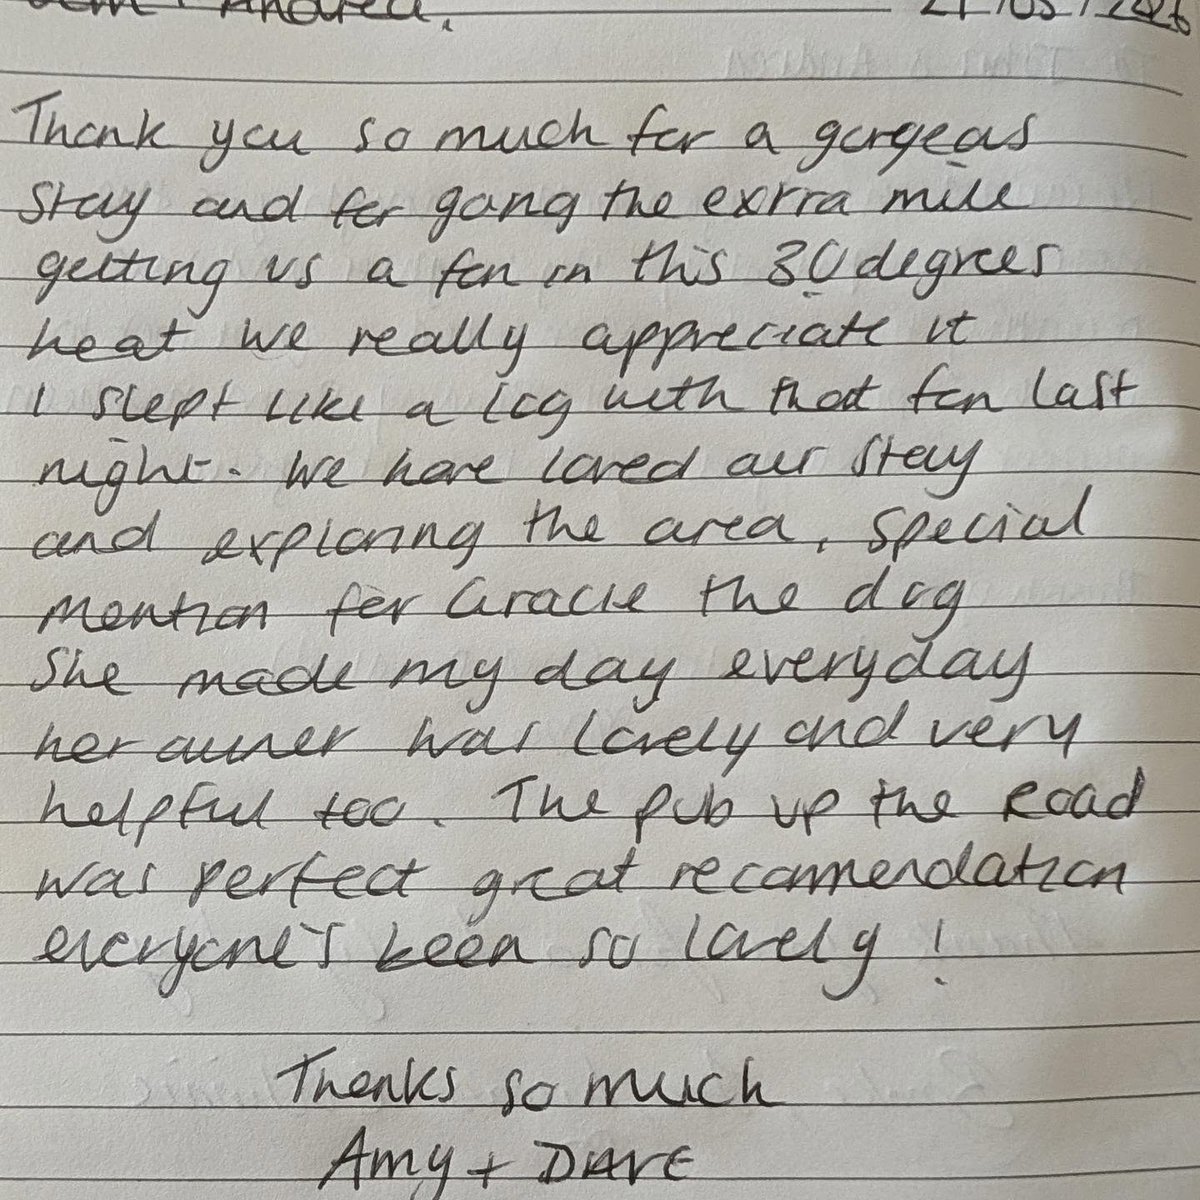 Andrea.
Thank you so much for a gorgeous
stay and for going the extra mile
getting us a fan in this 30 degrees
heat we really appreciate it
I slept like a log with that fan last
night. We have loved our stay
and exploring the area, special
mention for Gracie the dog
She made my day everyday
her owner was lovely and very
helpful too. The pub up the Road
was perfect great recommendation
everyone's been so lovely!
Thanks so much
Amy + DAVE